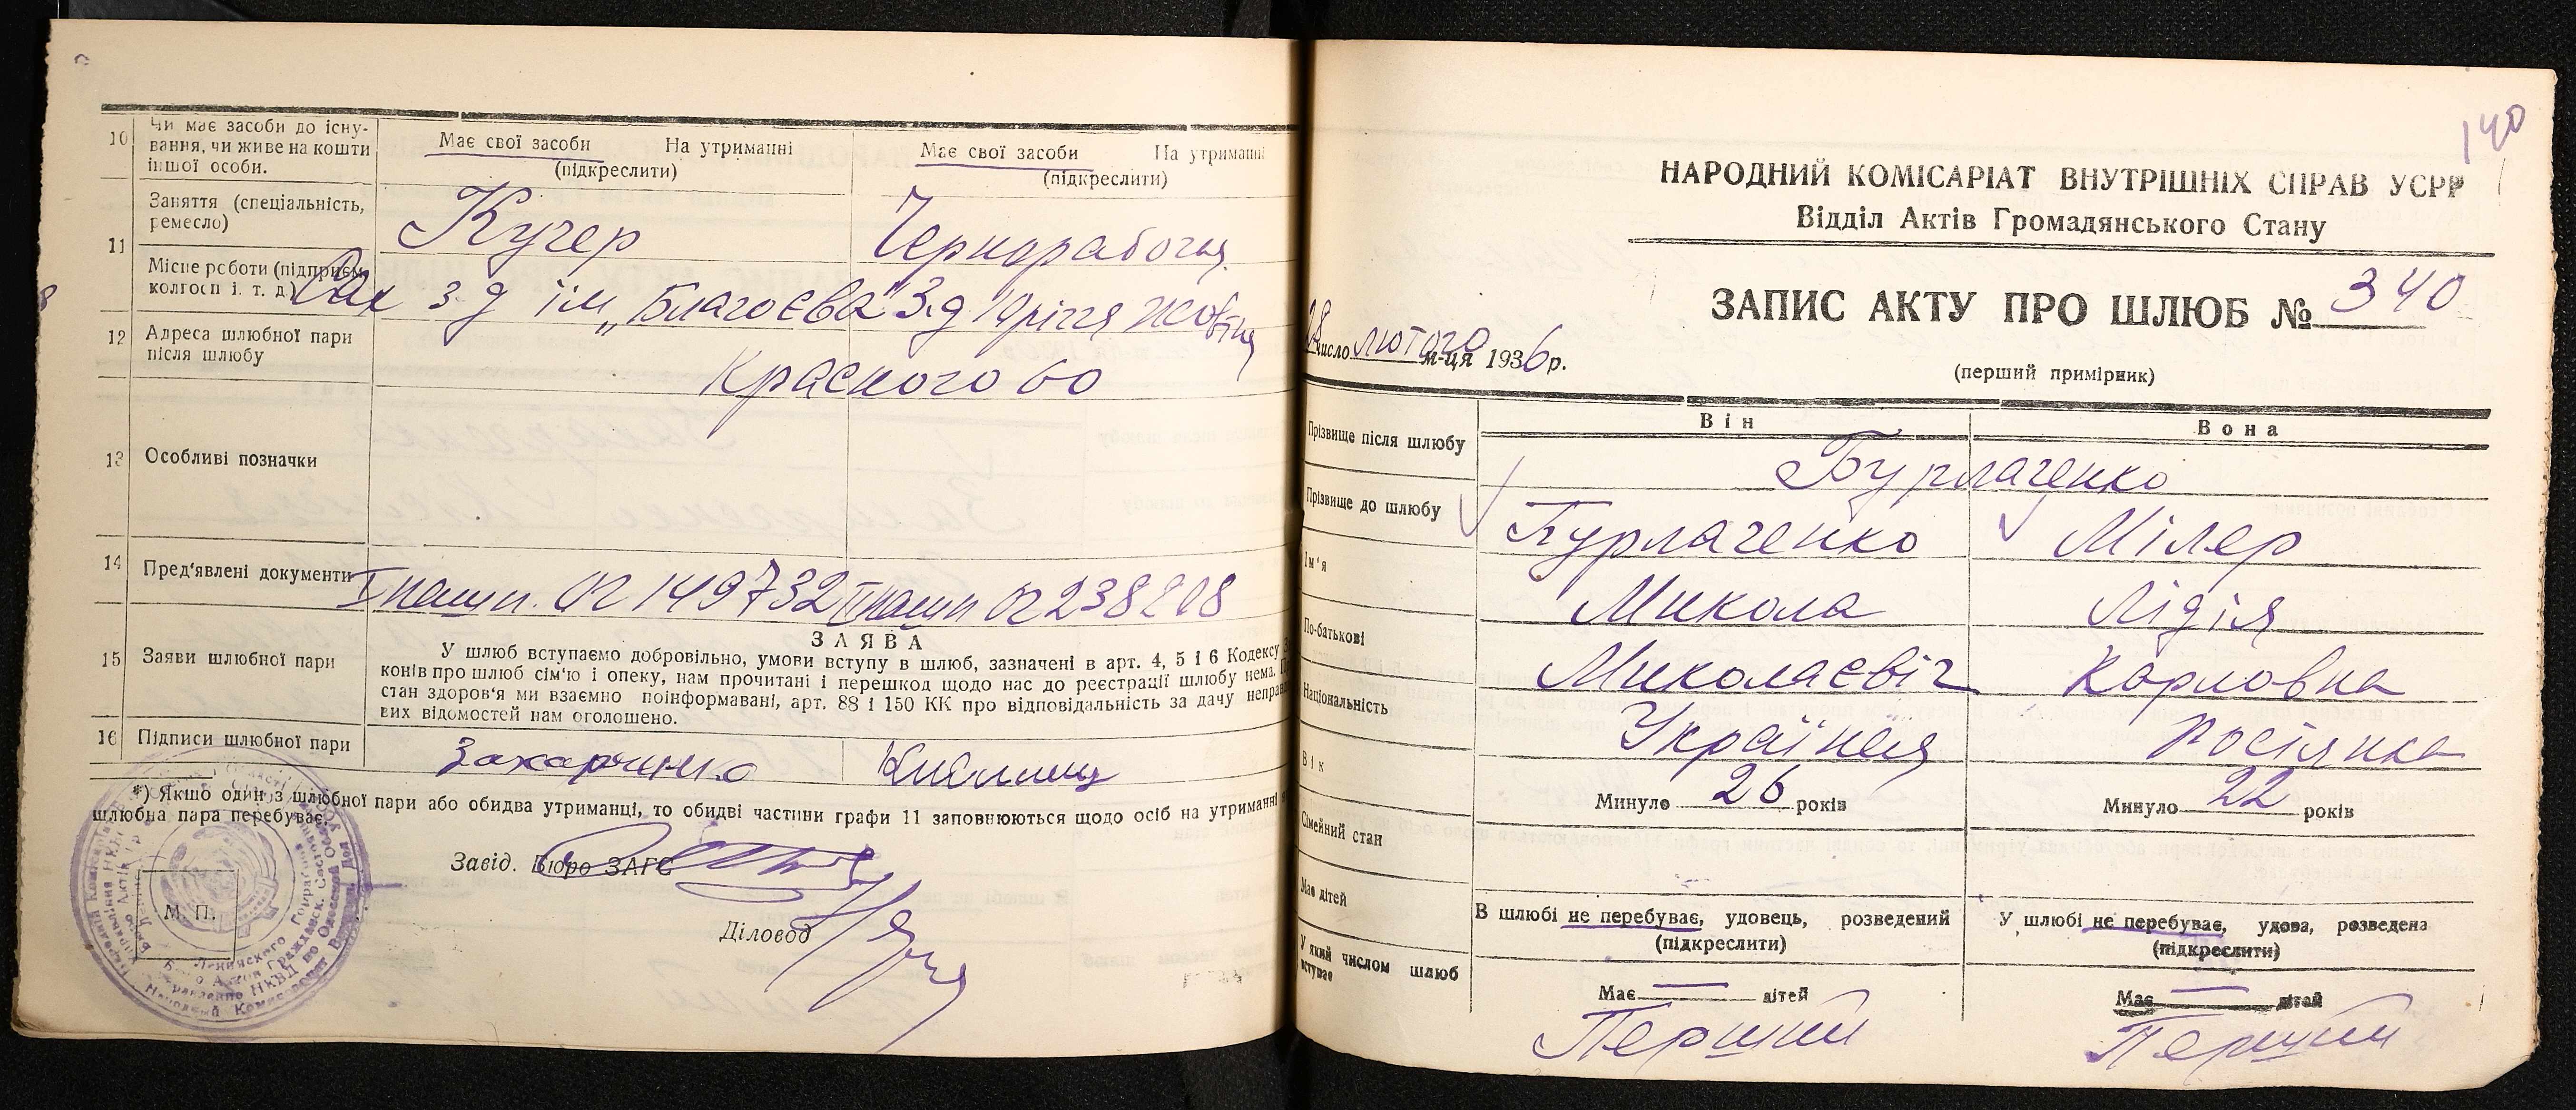 10
Чи має засоби до існу-
вання, чи живе на кошти
іншої особи.
Має свої засоби На утриманні
(підкреслити)
Має свої засоби На утриманні
(підкреслити)
11
Заняття (спеціальність,
ремесло)
Кучер
Чернорабочая
Місце роботи (підприєм.
колгосп і. т. д.)
з-д ім „Благоєва"
З-д 19 річчя Жовтня
12
Адреса шлюбної пари
після шлюбу
Красного 60
13
Особливі позначки
14
Пред'явлені документи
149732
15
Заяви шлюбної пари
ЗАЯВА
У шлюб вступаємо добровільно, умови вступу в шлюб, зазначені в арт. 4, 5 і 6 Кодексу
конів про шлюб сім'ю і опеку, нам прочитані і перешкод щодо нас до реєстрації шлюбу нема.
стан здоров'я ми взаємно поінформавані, арт. 88 і 150 КК про відповідальність за дачу неправ
вих відомостей нам оголошено.
16
Підписи шлюбної пари
Захарченко
*) Якщо один з шлюбної пари або обидва утриманці, то обидві частини графи 11 заповнюються щодо осіб на утриманні
шлюбна пара перебуває.
Завід. Бюро ЗАГС
М. П.
Діловод
140
НАРОДНИЙ КОМІСАРІАТ ВНУТРІШНІХ СПРАВ УСРР
Відділ Актів Громадянського Стану
ЗАПИС АКТУ ПРО ШЛЮБ № 340
28 число лютого м-ця 1936 р.
(перший примірник)
Він
Вона
Прізвище після шлюбу
Бурлаченко
Прізвище до шлюбу
Бурлаченко
Мілер
Ім'я
Микола
Лідія
По-батькові
Миколаєвіч
Карловна
Національність
Українец
Росіянка
Вік
Минуло 26 років
Минуло 22 років
Сімейний стан
В шлюбі не перебуває, удовець, розведений
(підкреслити)
У шлюбі не перебуває, удова, розведена
(підкреслити)
Має дітей
Має — дітей
Має — дітей
У який числом шлюб
вступає
Перший
Перший